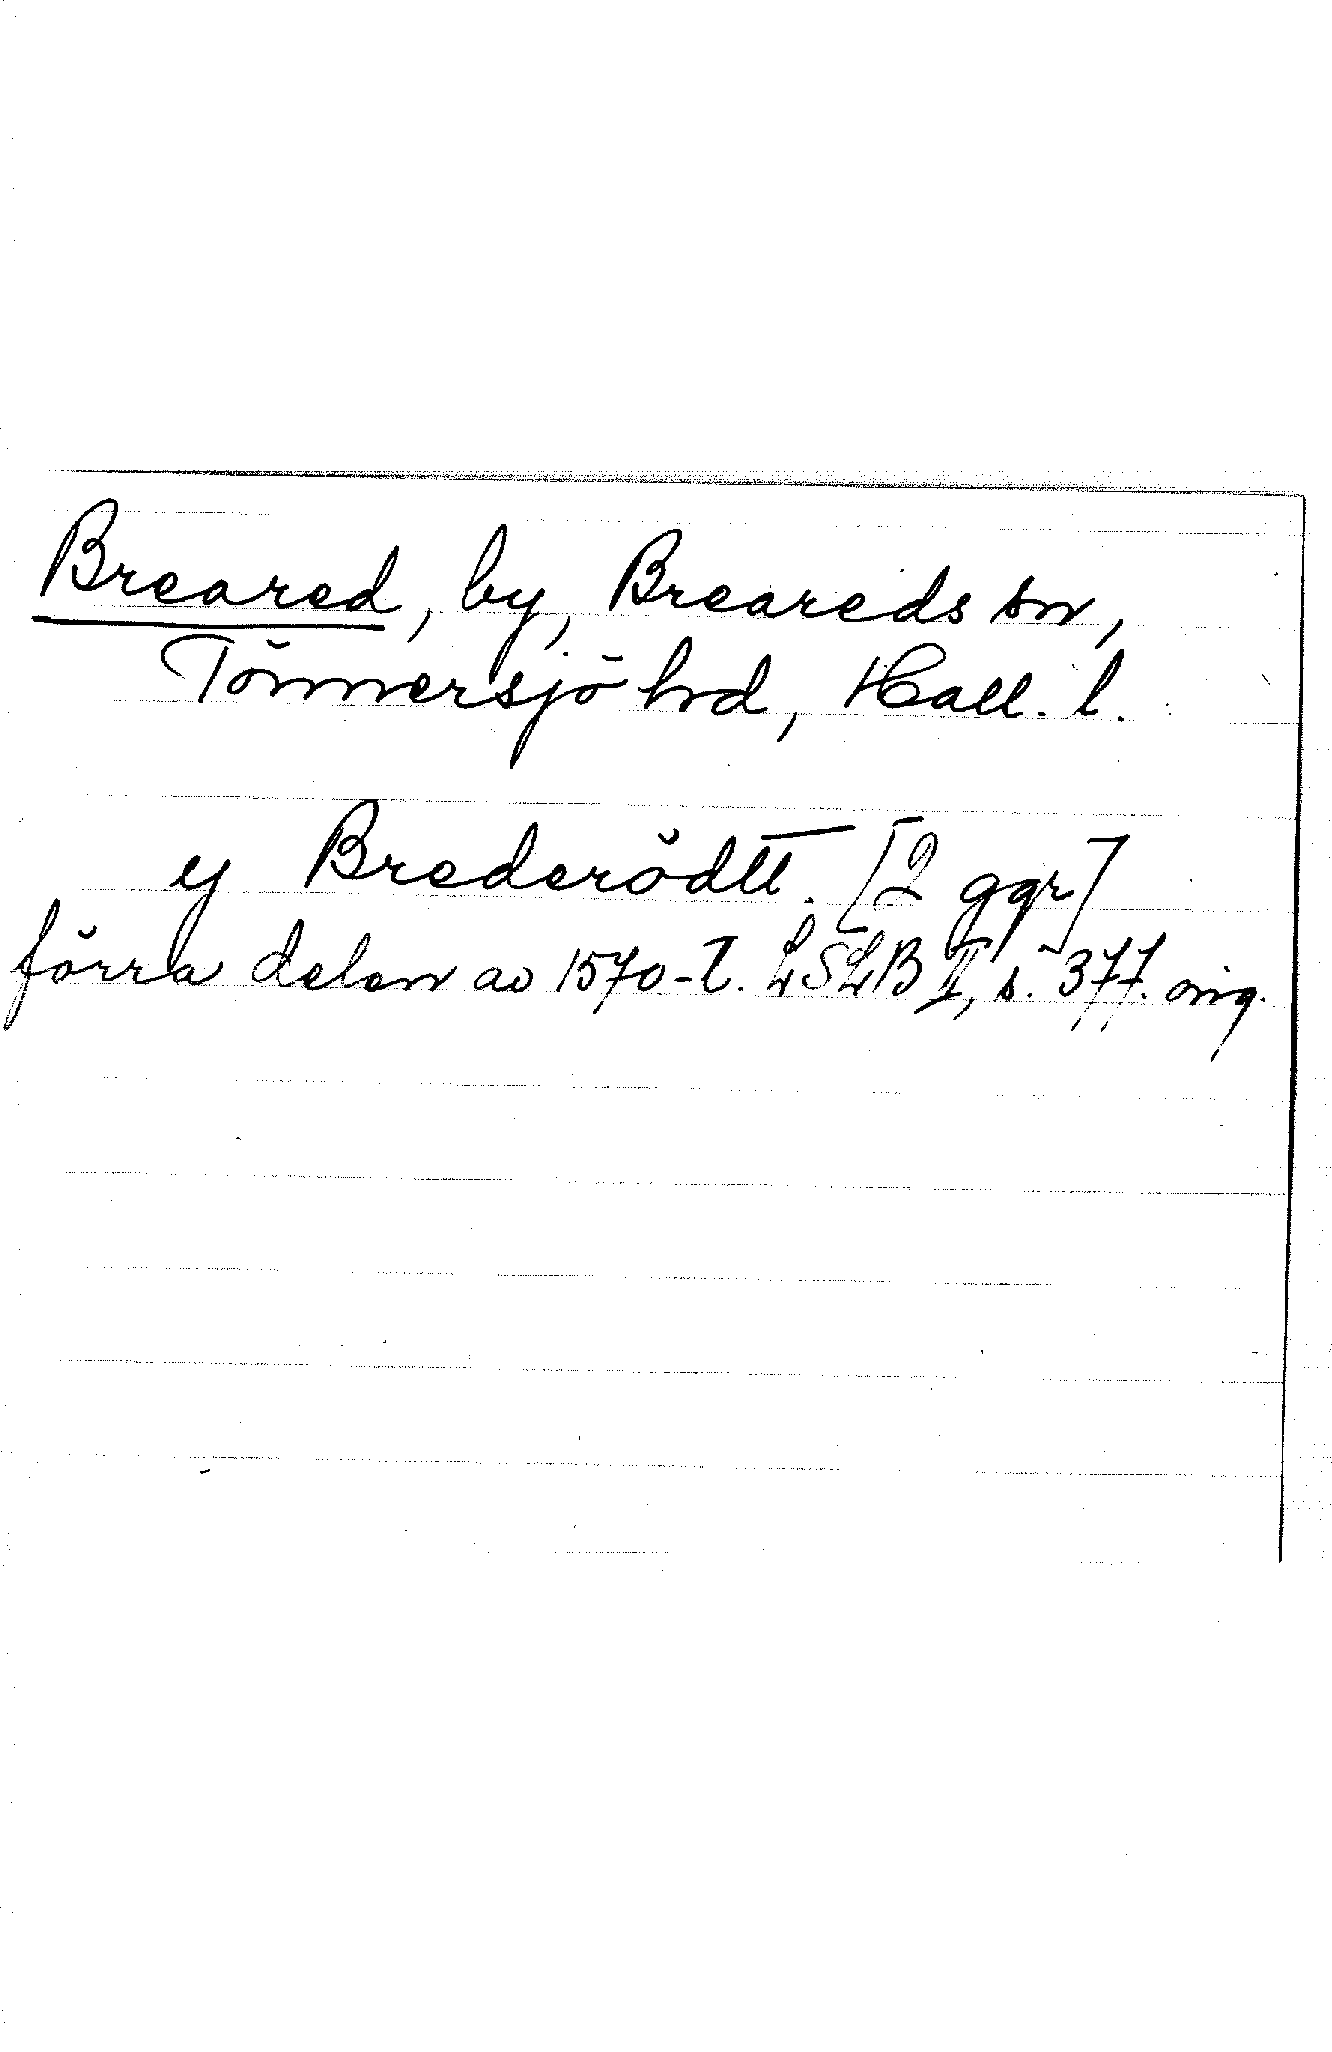 Breared, by, Breareds sn,
Tönnersjö hd, Hall. l.
y Brederödtt. [2 ggr]
förra delen av 1570-t. LSLB II, s. 377. orig.